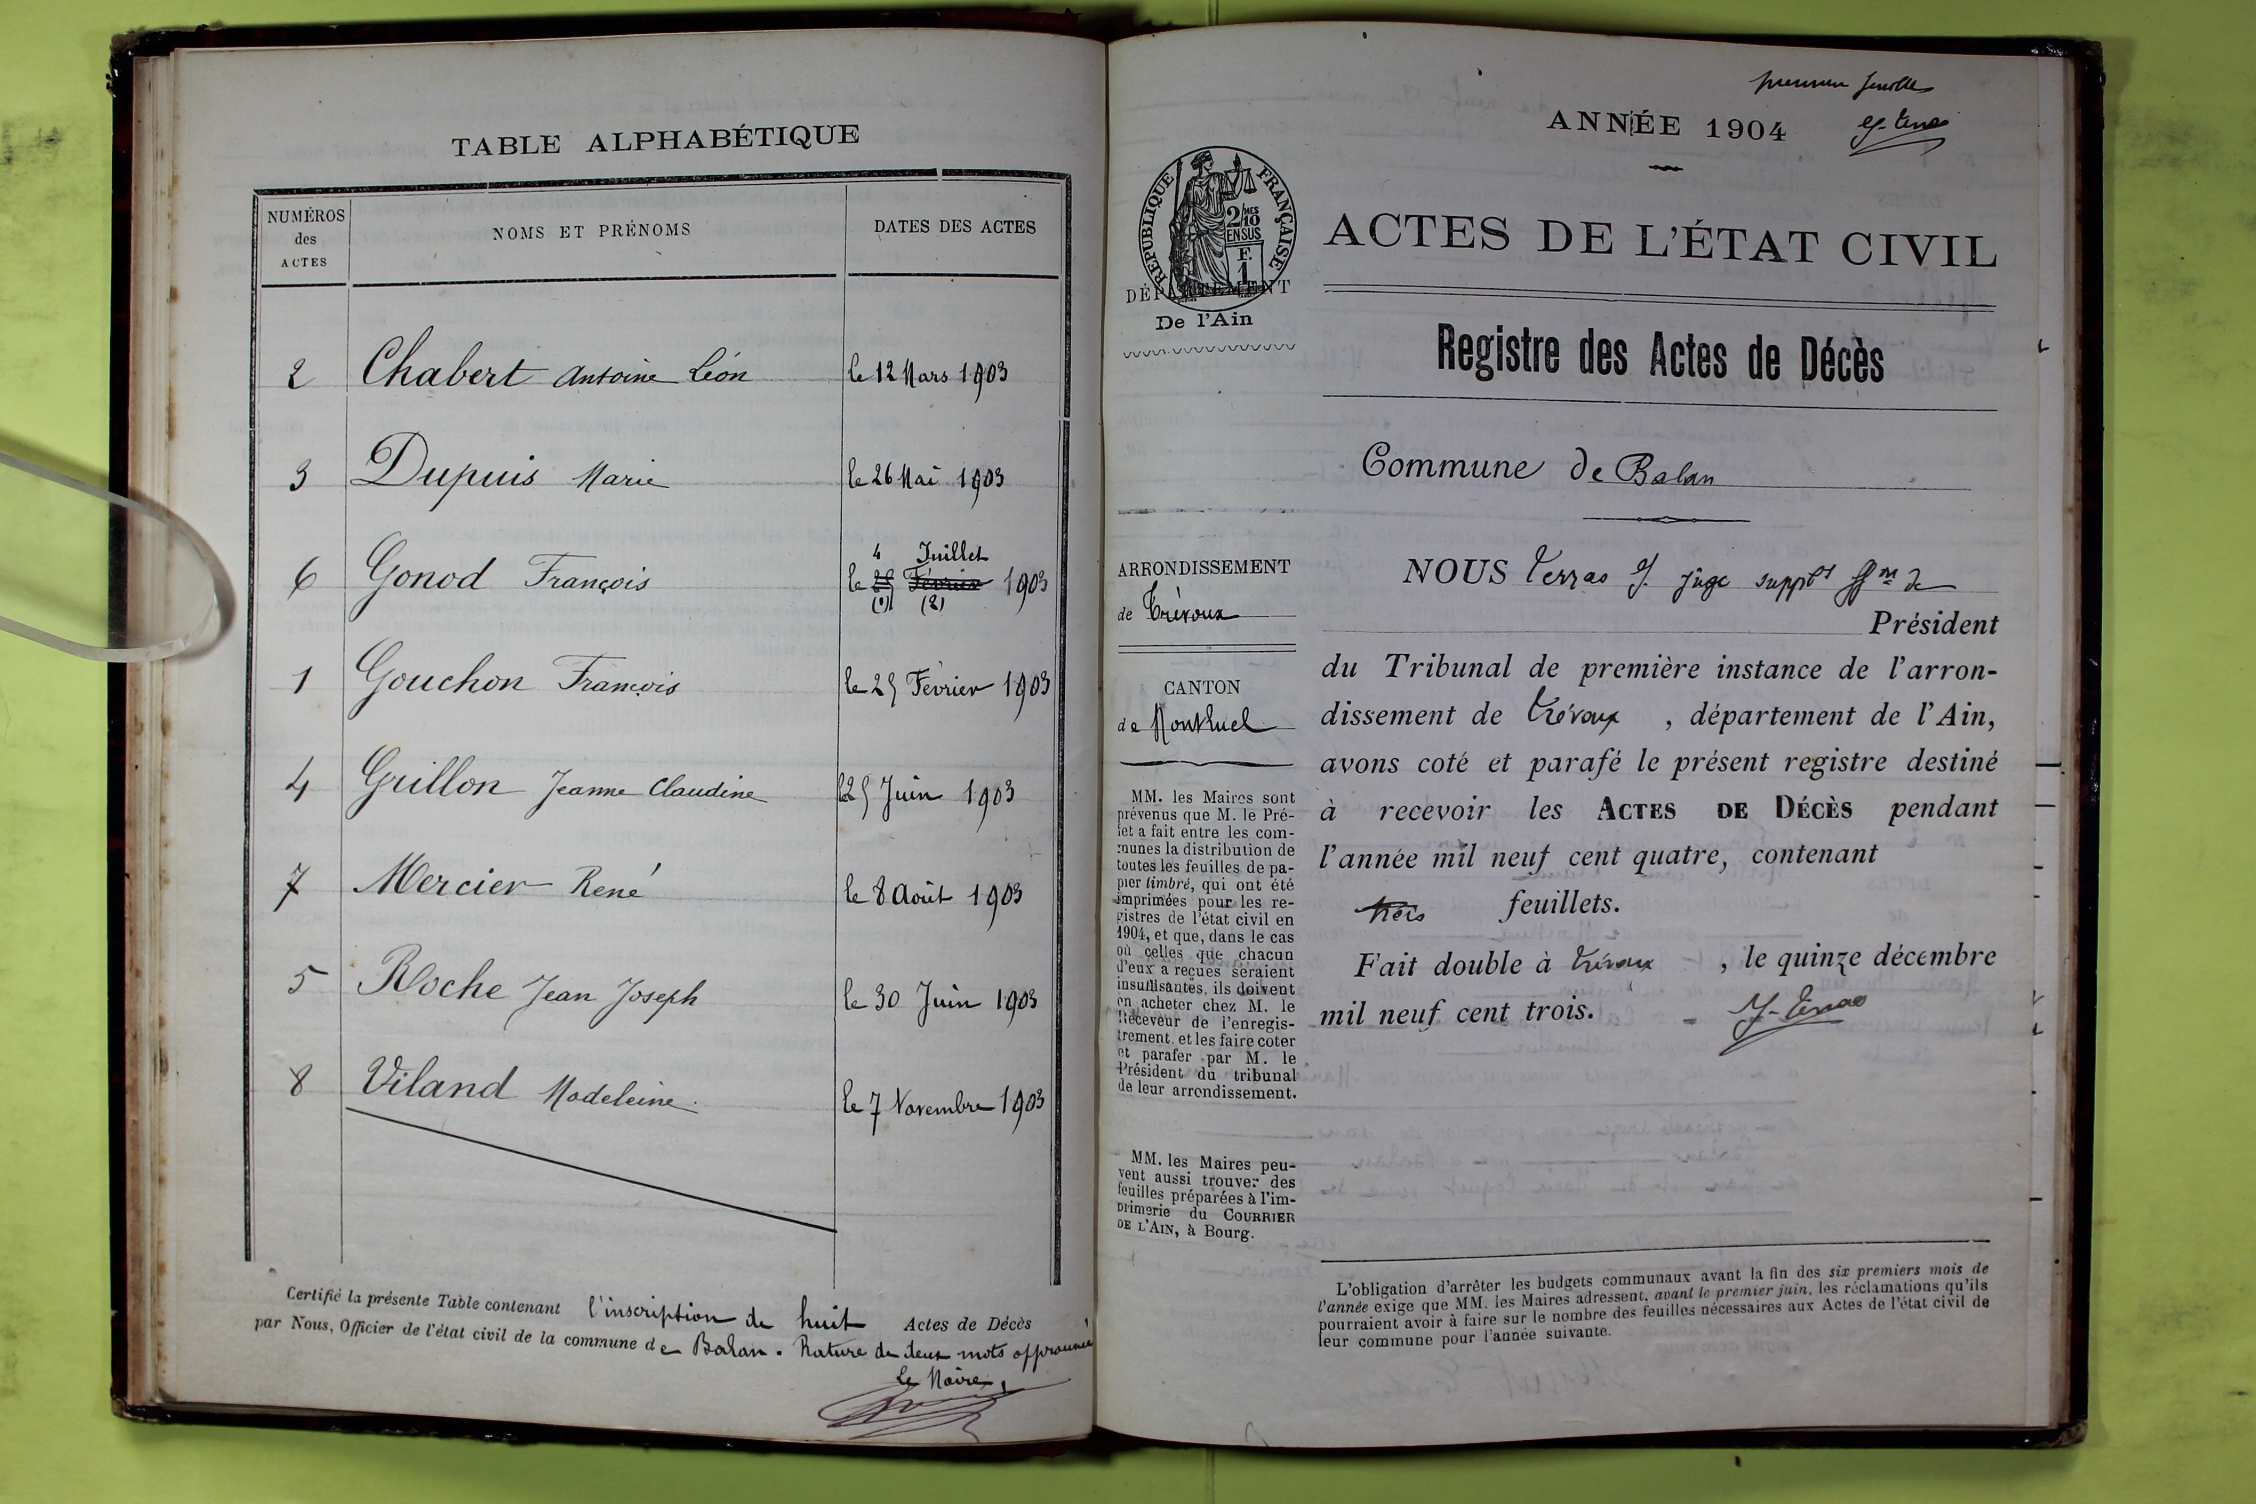 TABLE ALPHABÉTIQUE
NUMÉROS
des
ACTES
NOMS ET PRÉNOMS
DATES DES ACTES
2 Chabert Antoine Léon le 12 Mars 1903
3 Dupuis Marie le 26 Mai 1903
4 Juillet
6 Gonod François le 25 Février 1903
(1) (2)
1 Gouchon François le 25 Février 1903
4 Grillon Jeanne Claudine le 25 Juin 1903
7 Mercier René le 8 Août 1903
5 Roche Jean Joseph le 30 Juin 1903
8 Viland Madeleine le 7 Novembre 1903
Certifié la présente Table contenant l'inscription de huit Actes de Décès
par Nous, Officier de l'état civil de la commune de Balan. Rature de deux mots approuvée
Le Maire,
premier feuillet
ANNÉE 1904
RÉPUBLIQUE FRANÇAISE
2/10MES
EN SUS
F.
1
DÉPARTEMENT
De l'Ain
ACTES DE L'ÉTAT CIVIL
Registre des Actes de Décès
Commune de Balan
ARRONDISSEMENT
de Trévoux
CANTON
de Montluel
MM. les Maires sont
prévenus que M. le Pré-
fet a fait entre les com-
munes la distribution de
toutes les feuilles de pa-
pier timbré, qui ont été
imprimées pour les re-
gistres de l'état civil en
1904, et que, dans le cas
où celles que chacun
d'eux a reçues seraient
insuffisantes, ils doivent
en acheter chez M. le
Receveur de l'enregis-
trement, et les faire coter
et parafer par M. le
Président du tribunal
de leur arrondissement.
MM. les Maires peu-
vent aussi trouver des
feuilles préparées à l'im-
primerie du COURRIER
DE L'AIN, à Bourg.
NOUS Terras J. juge suppt ffon de
Président
du Tribunal de première instance de l'arron-
dissement de Trévoux , département de l'Ain,
avons coté et parafé le présent registre destiné
à recevoir les ACTES DE DÉCÈS pendant
l'année mil neuf cent quatre, contenant
trois feuillets.
Fait double à Trévoux , le quinze décembre
mil neuf cent trois. J. Terras
L'obligation d'arrêter les budgets communaux avant la fin des six premiers mois de
l'année exige que MM. les Maires adressent, avant le premier juin, les réclamations qu'ils
pourraient avoir à faire sur le nombre des feuilles nécessaires aux Actes de l'état civil de
leur commune pour l'année suivante.